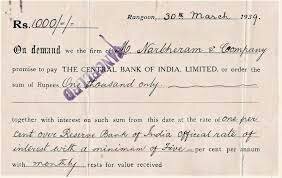 Rangoon, 30th March 1939.
Rs. 1000/-/-
On demand we the firm of M. Nartheram & Company
promise to PAY THE CENTRAL BANK OF INDIA, LIMITED, or order the
sum of Rupees One thousand only
CANCELLED
together with interest on such sum from this date at the rate of one per
cent over Reserve Bank of India official rate of
interest with a minimum of Five per cent per annum
with monthly rests for value received